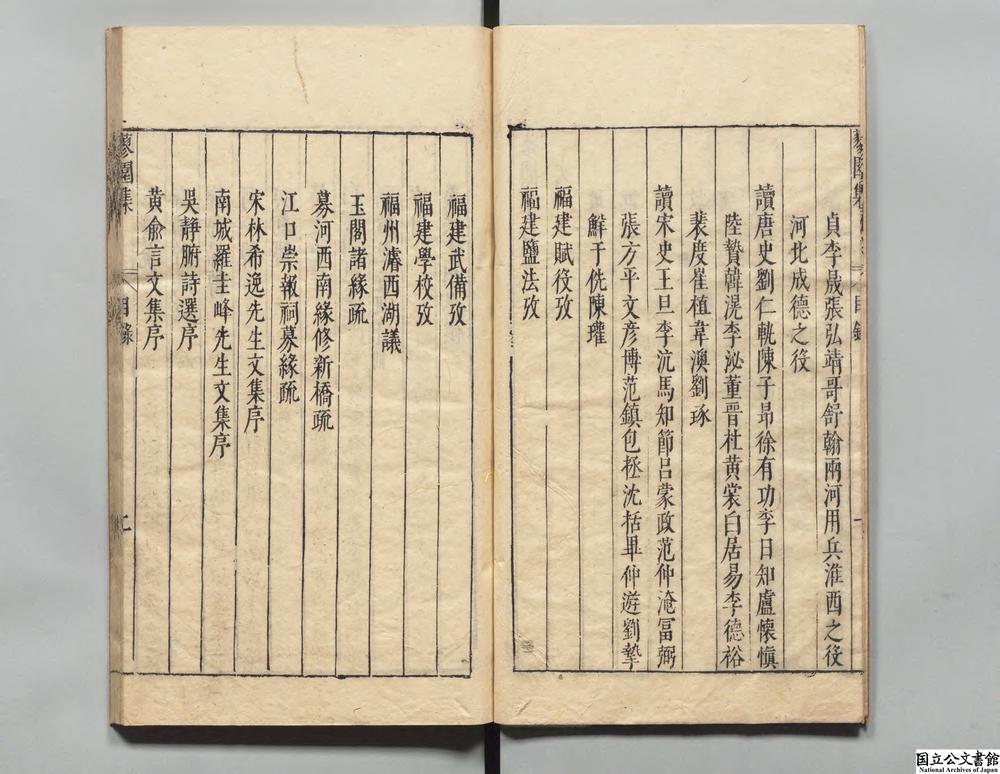 貞李晟張弘靖哥舒翰兩河用兵淮西之役
河北成德之役
讀唐史劉仁軌陳子昂徐有功李日知盧懷慎
陸贄韓滉李泌董晉杜黃裳白居易李德裕
裴度崔植韋澳劉琢
讀宋史王旦李沆馬知節呂蒙政范仲淹冨弼
張方平文彥博范鎮包拯沈括畢仲遊劉摯
鮮于侁陳瓘
福建賦役攷
福建鹽法攷
福建武備攷
福建學校攷
福州濬西湖議
玉閣諸緣疏
募河西南緣修新橋疏
江口崇報祠募緣疏
宋林希逸先生文集序
南城羅圭峰先生文集序
吳靜腑詩選序
黃俞言文集序
蓼園集
目錄
二
国立公文書館
National Archives of Japan